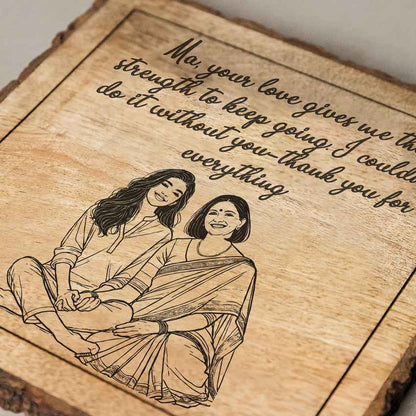 Ma, your love gives me th
strength to keep going. I couldn
do it without you-thank you for
everything